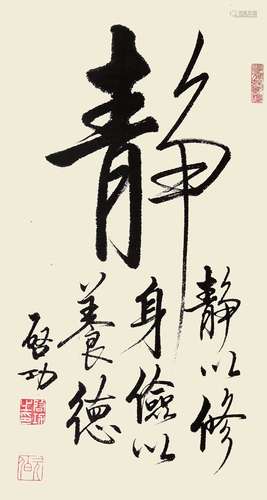 静
静以修
身儉以
養德
啓功